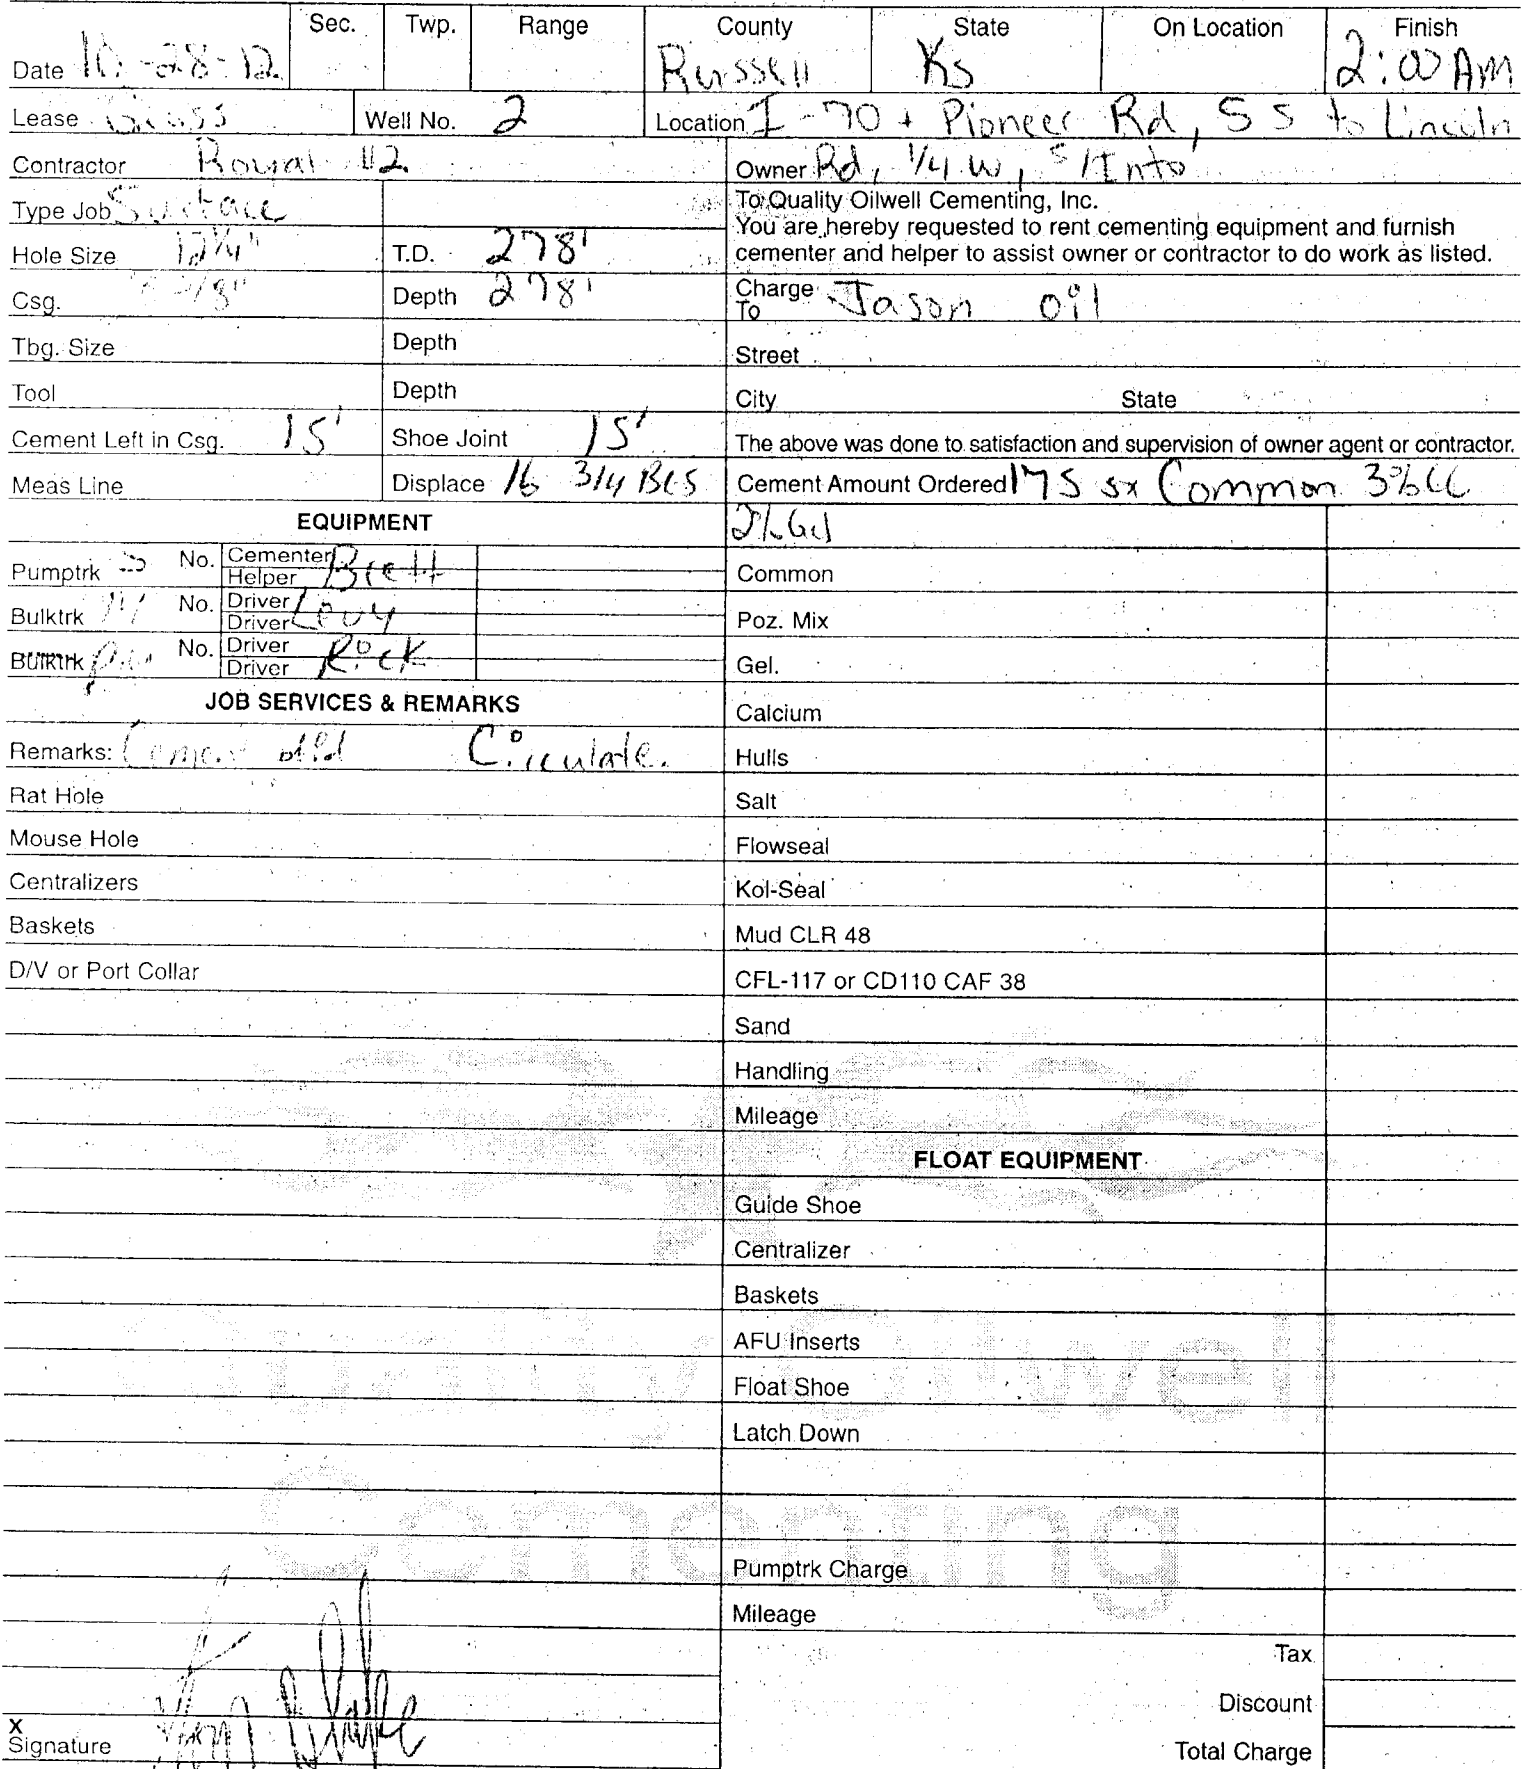 Sec. Twp. Range County State On Location Finish
Date 10-28-12 Russell Ks 2:00 AM
Lease Well No. 2 Location I-70 + Pioneer Rd, 5 S to Lincoln
Contractor Royal #2 Owner Rd, 1/4 W, S/Into
Type Job Surface To Quality Oilwell Cementing, Inc.
You are hereby requested to rent cementing equipment and furnish
cementer and helper to assist owner or contractor to do work as listed.
Hole Size 12 1/4" T.D. 278'
Csg. 8 5/8" Depth 278' Charge To Jason Oil
Tbg. Size Depth Street
Tool Depth City State
Cement Left in Csg. 15' Shoe Joint 15' The above was done to satisfaction and supervision of owner agent or contractor.
Meas Line Displace 16 3/4 BLS Cement Amount Ordered 175 sx Common 3%CC
EQUIPMENT 2%Gel
Pumptrk No. Cementer Helper Brett Common
Bulktrk No. Driver Driver Levy Poz. Mix
Bulktrk p.u. No. Driver Driver Rick Gel.
JOB SERVICES & REMARKS Calcium
Remarks: Cement did Circulate. Hulls
Rat Hole Salt
Mouse Hole Flowseal
Centralizers Kol-Seal
Baskets Mud CLR 48
D/V or Port Collar CFL-117 or CD110 CAF 38
Sand
Handling
Mileage
FLOAT EQUIPMENT
Guide Shoe
Centralizer
Baskets
AFU Inserts
Float Shoe
Latch Down
Quality Oilwell
Cementing
Pumptrk Charge
Mileage
Tax
Discount
X
Signature Total Charge